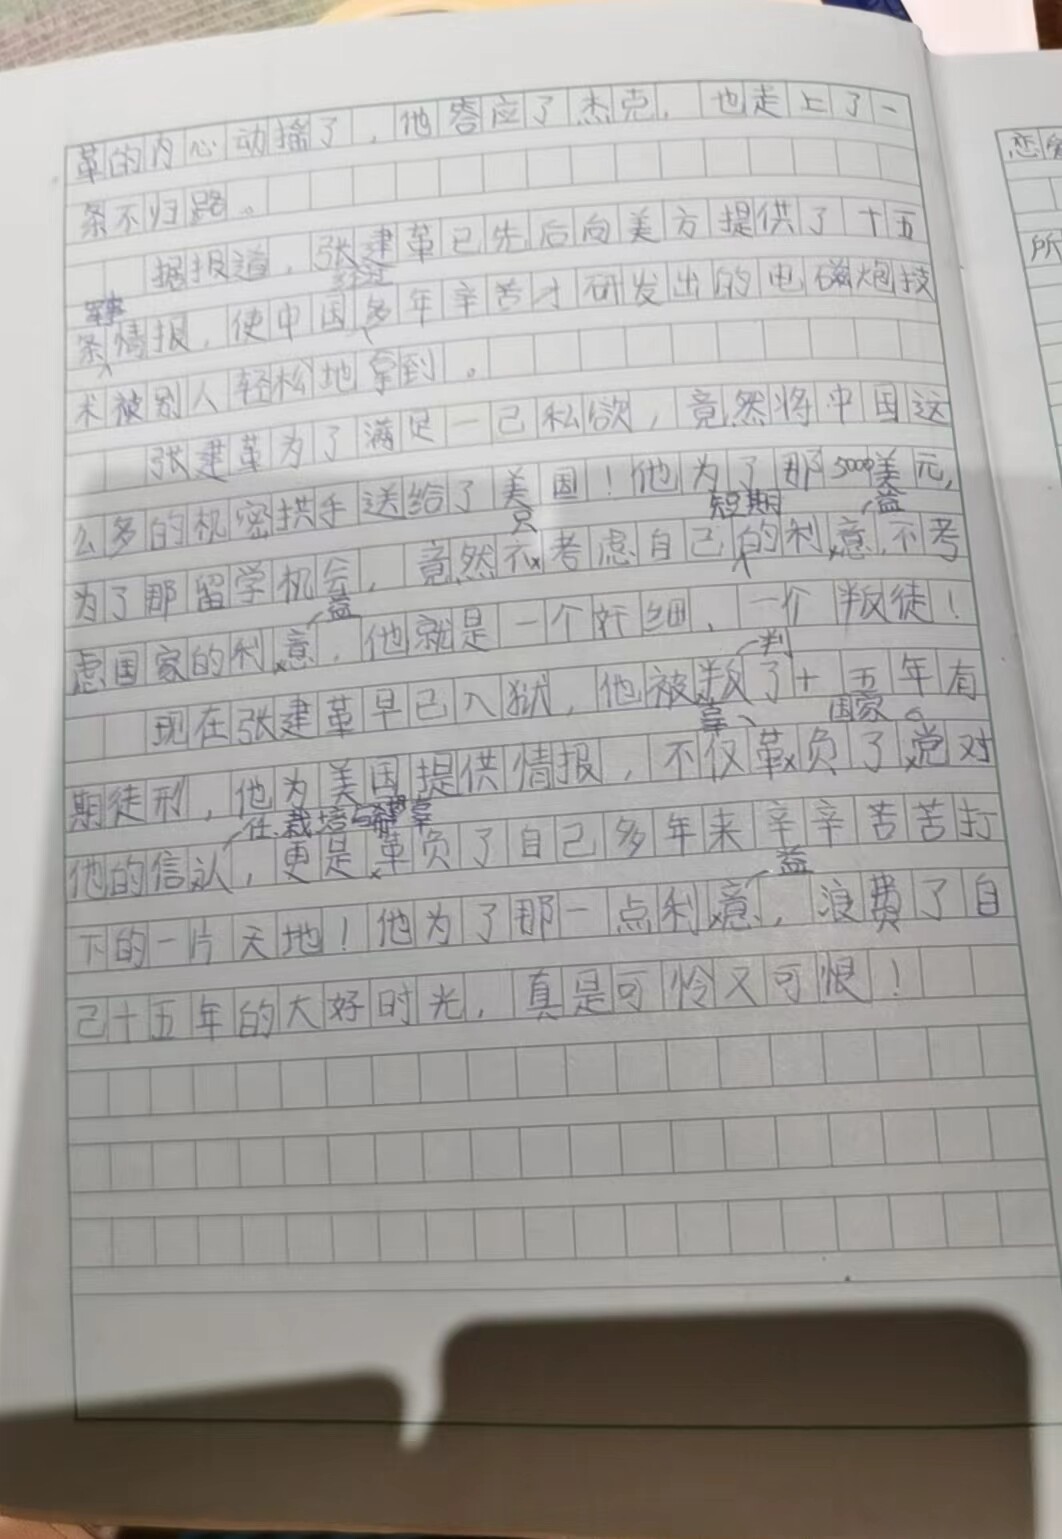 革的内心动摇了，他答应了杰克，也走上了一
条不归路。
据报道，张建革已先后向美方提供了十五
经过
军事
条情报，使中国多年辛苦才研发出的电磁炮技
术被别人轻松地拿到。
张建革为了满足一己私欲，竟然将中国这
么多的机密拱手送给了美国！他为了那5000美元，
只 短期 益
为了那留学机会，竟然不考虑自己的利意，不考
益
虑国家的利意，他就是一个奸细、一个叛徒！
判
现在张建革早已入狱，他被叛了十五年有
辜 国家
期徒刑，他为美国提供情报，不仅革负了党对
任 栽培与 辜
他的信认，更是革负了自己多年来辛辛苦苦打
益
下的一片天地！他为了那一点利意，浪费了自
己十五年的大好时光，真是可怜又可恨！
恋
所